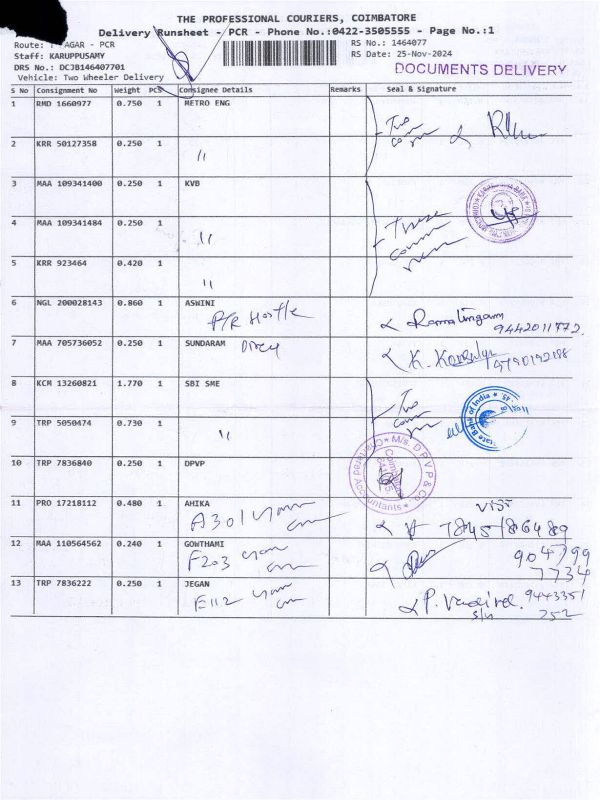 THE PROFESSIONAL COURIERS, COIMBATORE
Delivery Runsheet - PCR - Phone No.:0422-3505555 - Page No.:1
Route: AGAR - PCR RS No.: 1464077
Staff: KARUPPUSAMY RS Date: 25-Nov-2024
DRS No.: DCJB146407701 DOCUMENTS DELIVERY
Vehicle: Two Wheeler Delivery
S No Consignment No Weight PCS Consignee Details Remarks Seal & Signature
1 RMD 1660977 0.750 1 METRO ENG Two
2 KRR 50127358 0.250 1 "
3 MAA 109341400 0.250 1 KVB
4 MAA 109341484 0.250 1 " Three
5 KRR 923464 0.420 1 "
6 NGL 200028143 0.860 1 ASWINI
P/R Hostle Ramalingam 9442011772
7 MAA 705736052 0.250 1 SUNDARAM
8 KCM 13260821 1.770 1 SBI SME Two
State Bank of India
9 TRP 5050474 0.730 1 "
10 TRP 7836840 0.250 1 DPVP
M/s. DPVP & Co Chartered Accountants
11 PRO 17218112 0.480 1 AHIKA
A301
12 MAA 110564562 0.240 1 GOWTHAMI
F203 904799
7734
13 TRP 7836222 0.250 1 JEGAN
E112 9443351
252